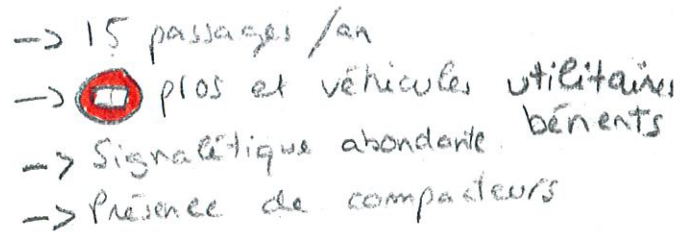 -> 15 passages /an
-> pros et véhicules utilitaires
bénents
-> Signalétique abondante
-> Présence de compacteurs